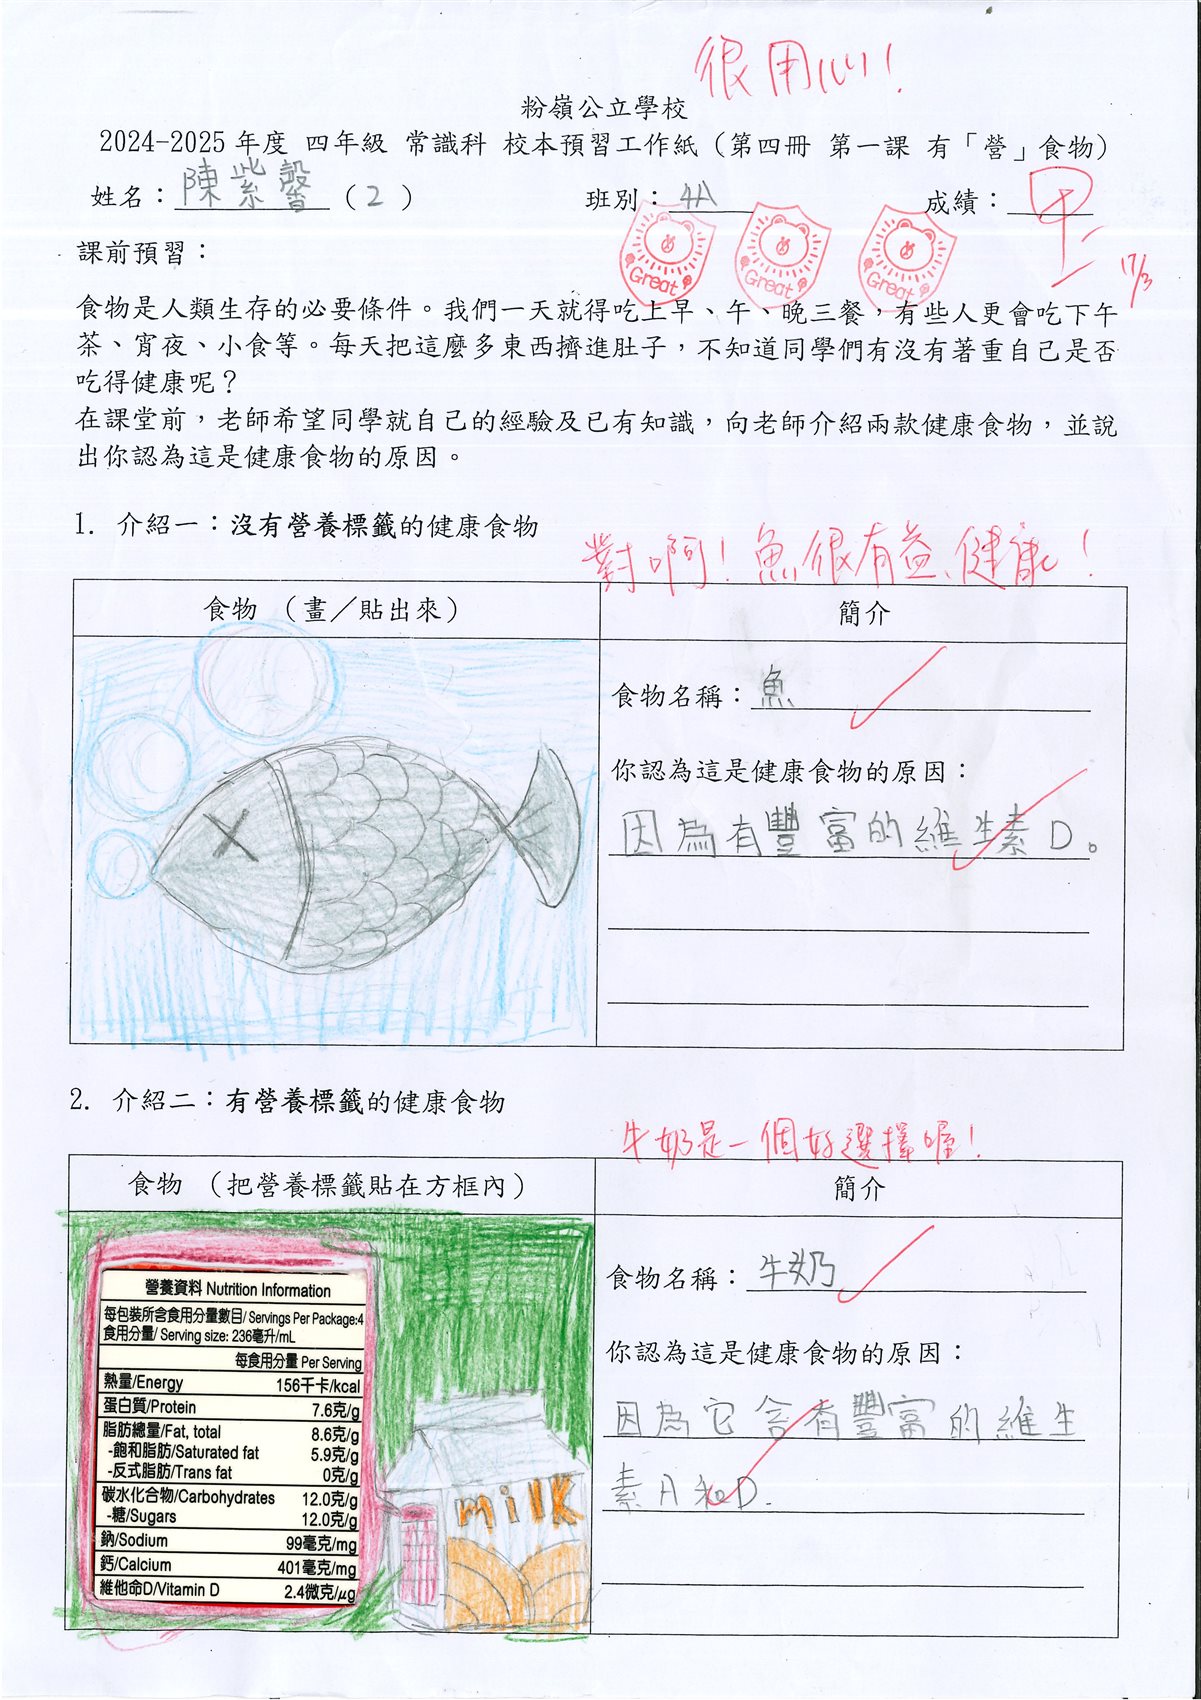 很用心!
粉嶺公立學校
2024-2025 年度 四年級 常識科 校本預習工作紙（第四冊 第一課 有「營」食物）
姓名：陳紫馨（2） 班別：4A 成績：甲-
17/3
Great Great Great
課前預習：
食物是人類生存的必要條件。我們一天就得吃上早、午、晚三餐，有些人更會吃下午
茶、宵夜、小食等。每天把這麼多東西擠進肚子，不知道同學們有沒有著重自己是否
吃得健康呢？
在課堂前，老師希望同學就自己的經驗及已有知識，向老師介紹兩款健康食物，並說
出你認為這是健康食物的原因。
1. 介紹一：沒有營養標籤的健康食物
對啊!魚很有益、健康!
食物 （畫／貼出來）
簡介
食物名稱：魚
你認為這是健康食物的原因：
因為有豐富的維生素D。
2. 介紹二：有營養標籤的健康食物
牛奶是一個好選擇喔!
食物 （把營養標籤貼在方框內）
簡介
營養資料 Nutrition Information
每包裝所含食用分量數目/ Servings Per Package:4
食用分量/ Serving size: 236毫升/mL
每食用分量 Per Serving
熱量/Energy 156千卡/kcal
蛋白質/Protein 7.6克/g
脂肪總量/Fat, total 8.6克/g
-飽和脂肪/Saturated fat 5.9克/g
-反式脂肪/Trans fat 0克/g
碳水化合物/Carbohydrates 12.0克/g
-糖/Sugars 12.0克/g
鈉/Sodium 99毫克/mg
鈣/Calcium 401毫克/mg
維他命D/Vitamin D 2.4微克/μg
milk
食物名稱：牛奶
你認為這是健康食物的原因：
因為它含有豐富的維生
素A和D.